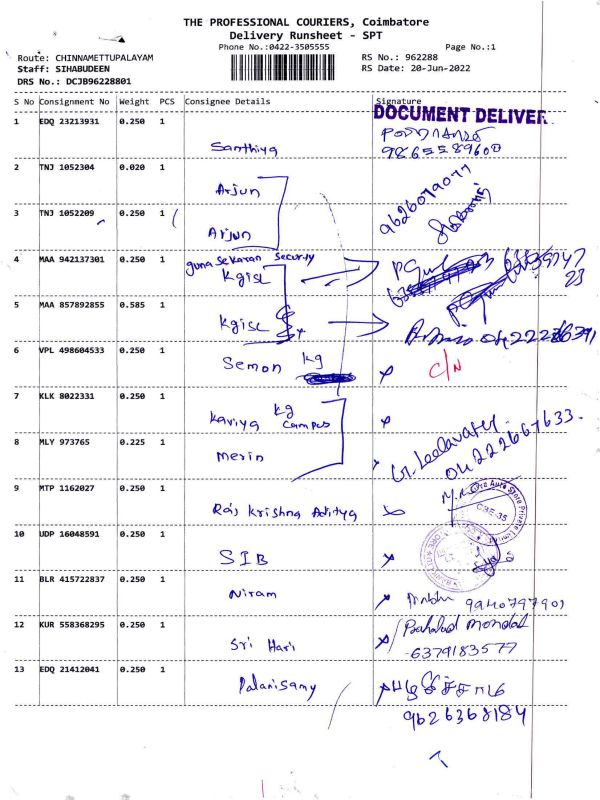 THE PROFESSIONAL COURIERS, Coimbatore
Delivery Runsheet - SPT
Phone No.:0422-3505555
Page No.:1
Route: CHINNAMETTUPALAYAM
RS No.: 962288
Staff: SIHABUDEEN
RS Date: 20-Jun-2022
DRS No.: DCJB96228801
S No Consignment No Weight PCS Consignee Details Signature
DOCUMENT DELIVER
1 EDQ 23213931 0.250 1
Santhiya 9865589600
2 TNJ 1052304 0.020 1
Arjun 9626079077
3 TNJ 1052209 0.250 1
Arjun
4 MAA 942137301 0.250 1 gunasekaran security
Kgisl
5 MAA 857892855 0.585 1
Kgisl
6 VPL 498604533 0.250 1
Semon kg C/N
7 KLK 8022331 0.250 1
Kaviya kg campus
8 MLY 973765 0.225 1
Merin G. Leelavathy
04222667633.
9 MTP 1162027 0.250 1
Raj Krishna Aditya
CBE-35
10 UDP 16048591 0.250 1
SIB
11 BLR 415722837 0.250 1
Niram 9940797901
12 KUR 558368295 0.250 1
Bahalad Mondal
Sri Hari 6379183577
13 EDQ 21412041 0.250 1
Palanisamy
9626368184